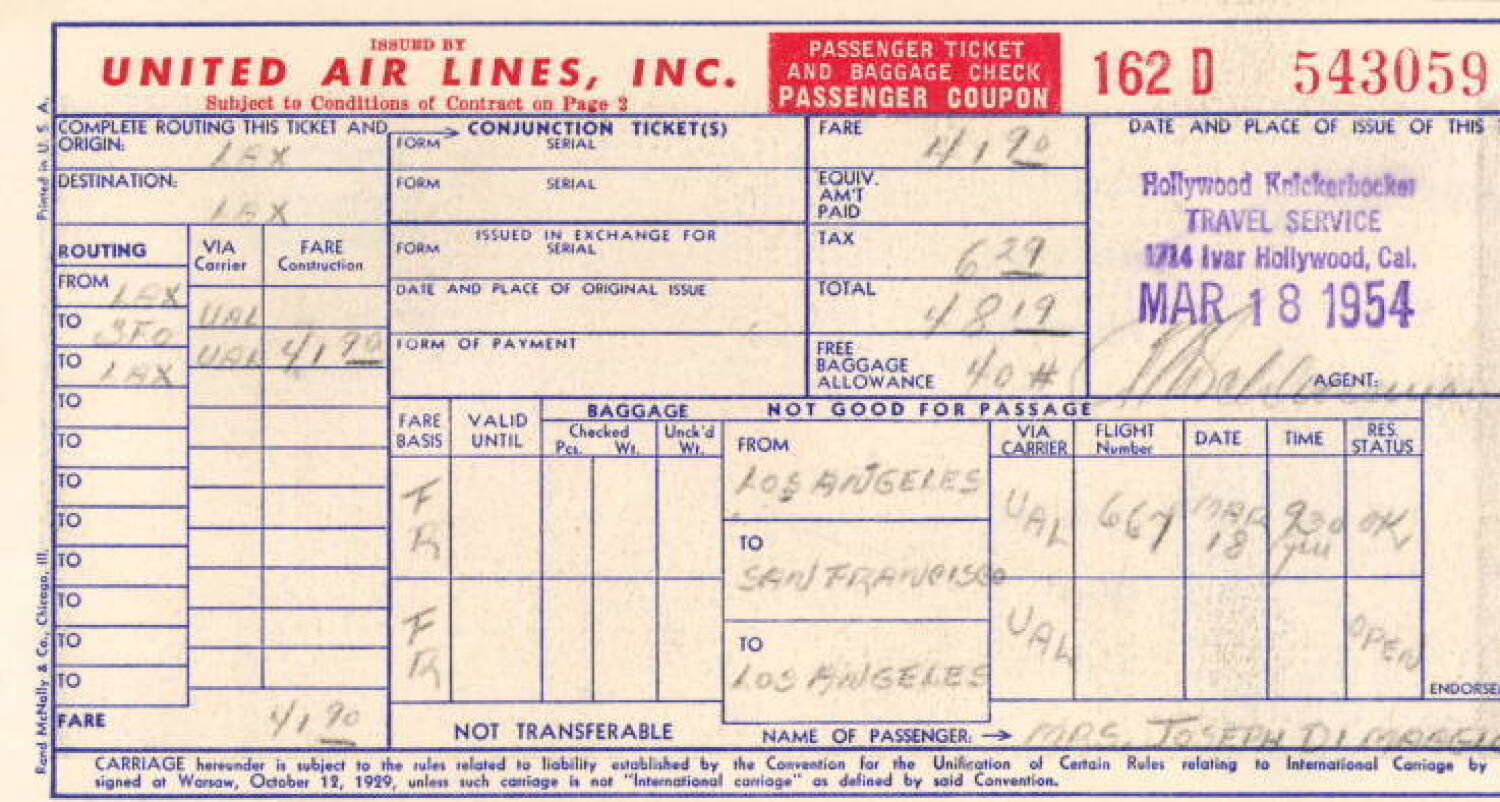 ISSUED BY
UNITED AIR LINES, INC.
Subject to Conditions of Contract on Page 2
PASSENGER TICKET
AND BAGGAGE CHECK
PASSENGER COUPON
162 D 543059
Printed in U. S. A.
COMPLETE ROUTING THIS TICKET AND
ORIGIN:
LAX
DESTINATION:
LAX
ROUTING VIA Carrier FARE Construction
FROM LAX
TO SFO UAL
TO LAX UAL 41 90
TO
TO
TO
TO
TO
TO
TO
TO
FARE 41 90
CONJUNCTION TICKET(S)
FORM SERIAL
FORM SERIAL
ISSUED IN EXCHANGE FOR
FORM SERIAL
DATE AND PLACE OF ORIGINAL ISSUE
FORM OF PAYMENT
FARE 41 90
EQUIV.
AM'T
PAID
TAX 6 29
TOTAL 48 19
FREE
BAGGAGE
ALLOWANCE 40 #
DATE AND PLACE OF ISSUE OF THIS
Hollywood Knickerbocker
TRAVEL SERVICE
1714 Ivar Hollywood, Cal.
MAR 18 1954
AGENT:
FARE BASIS VALID UNTIL BAGGAGE Checked Pcs. Wt. Unck'd Wt.
NOT GOOD FOR PASSAGE
FROM VIA CARRIER FLIGHT Number DATE TIME RES. STATUS
LOS ANGELES
F R UAL 667 MAR 18 930 OK
TO
SAN FRANCISCO
F R UAL OPEN
TO
LOS ANGELES
NOT TRANSFERABLE
NAME OF PASSENGER: MRS. JOSEPH DI MAGGIO
Rand McNally & Co., Chicago, Ill.
CARRIAGE hereunder is subject to the rules related to liability established by the Convention for the Unification of Certain Rules relating to International Carriage by
signed at Warsaw, October 12, 1929, unless such carriage is not "International carriage" as defined by said Convention.